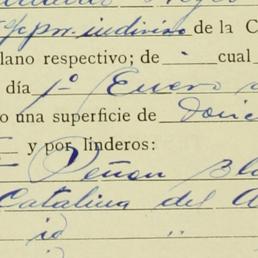 p/c pro. indiviso de la C
lano respectivo; de cual
día 1º Enero
o una superficie de
y por linderos:
Peñon Bla
Catalina del A
id "